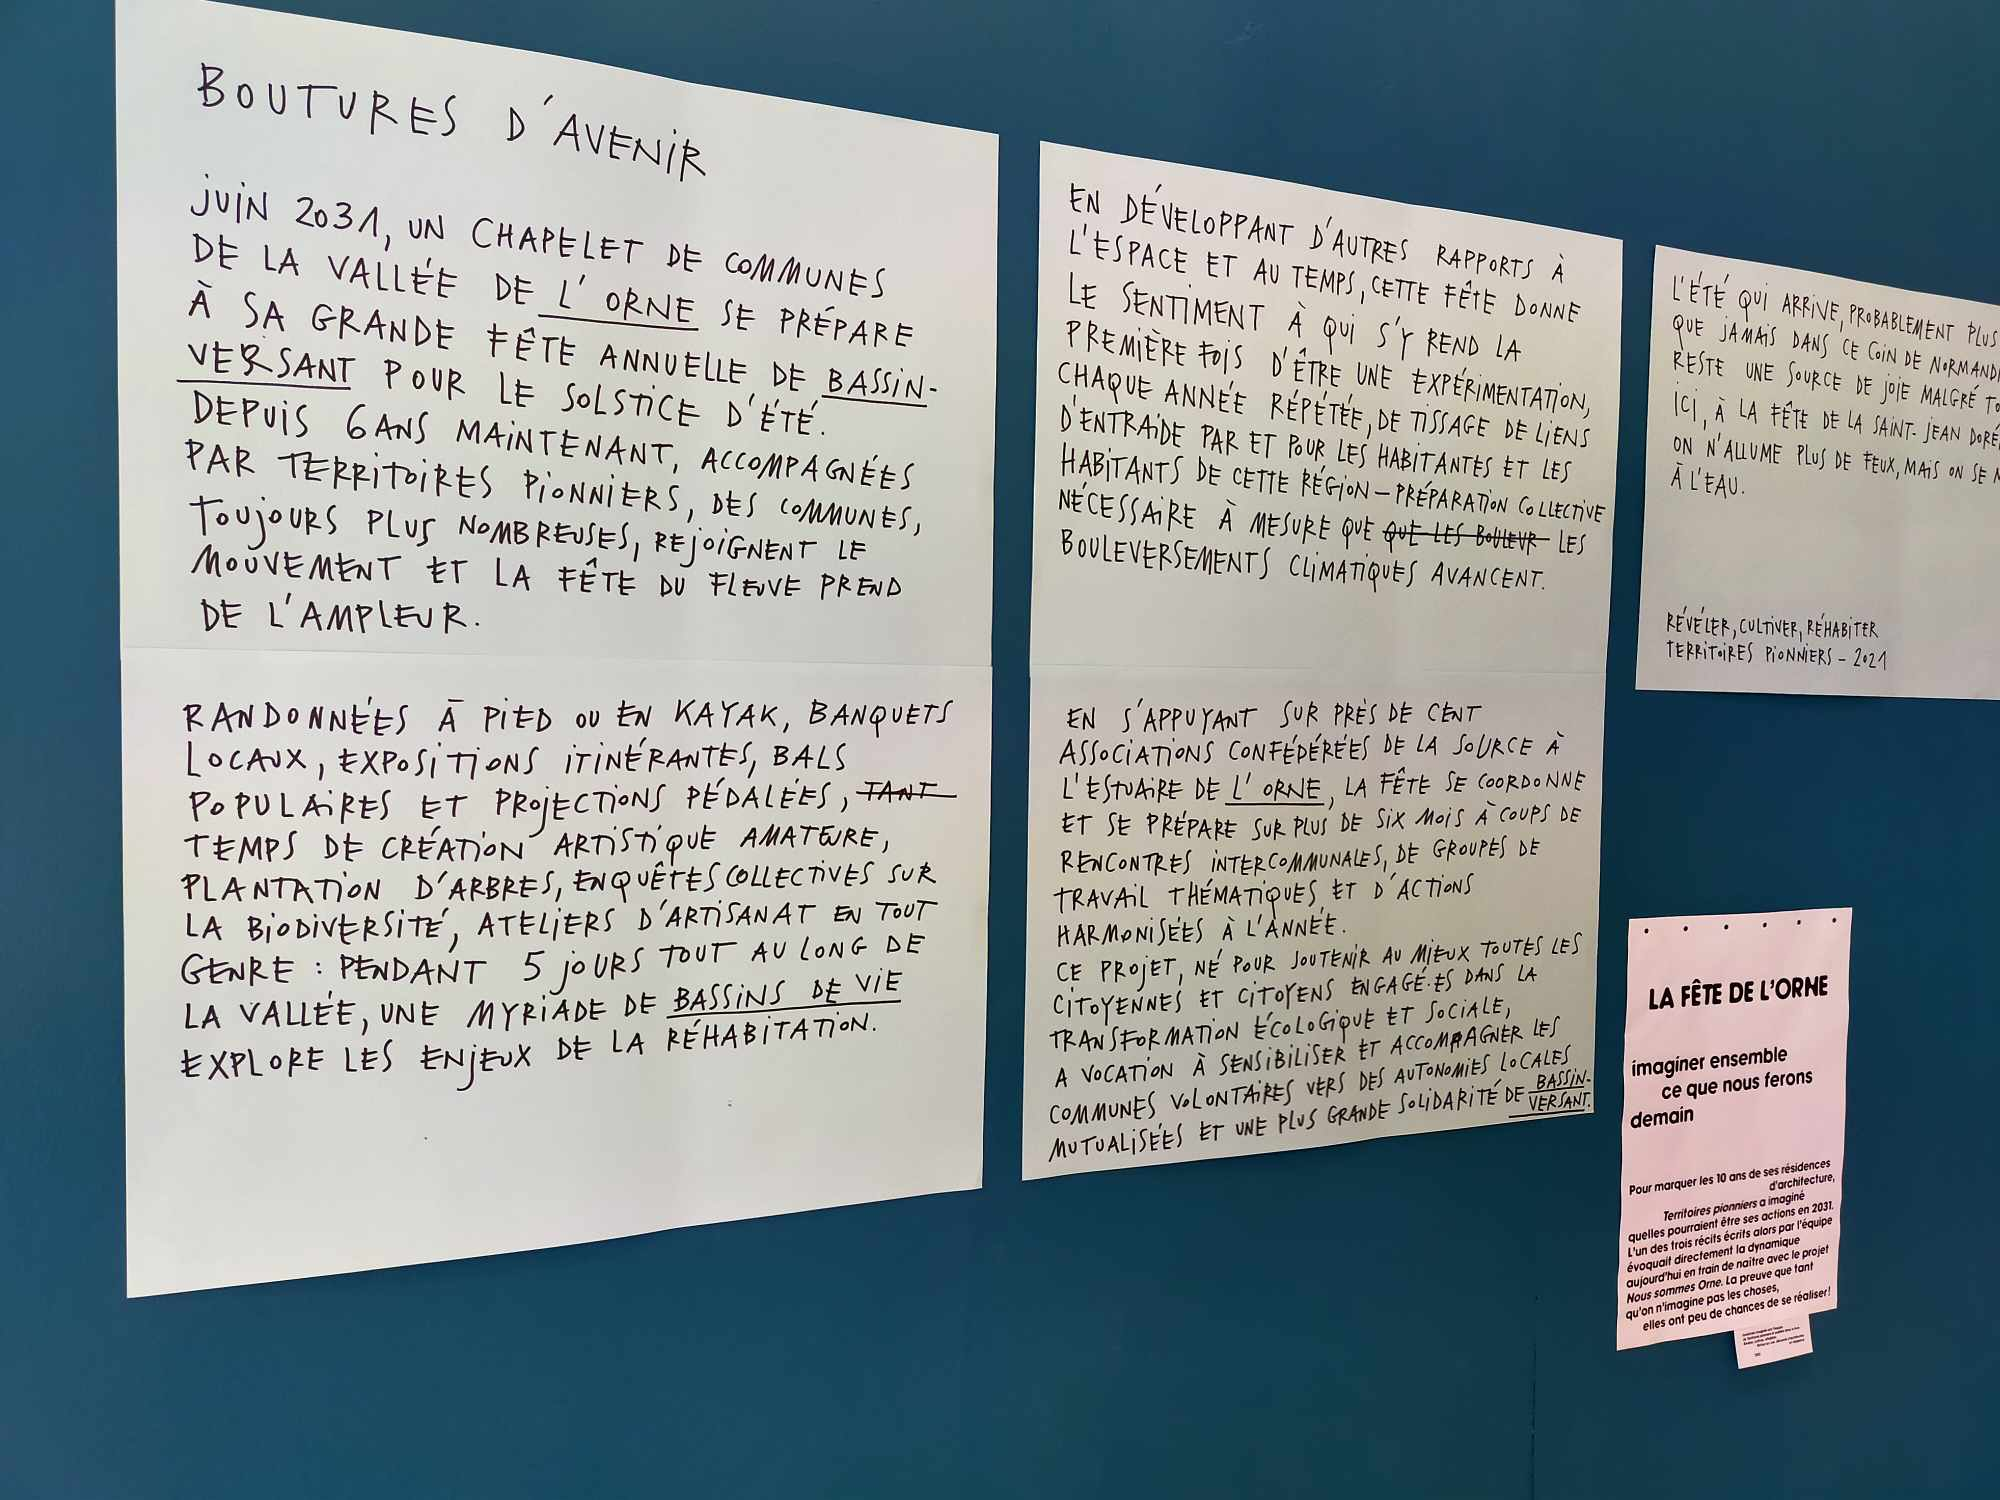 BOUTURES D'AVENIR
JUIN 2031, UN CHAPELET DE COMMUNES
DE LA VALLÉE DE L'ORNE SE PRÉPARE
À SA GRANDE FÊTE ANNUELLE DE BASSIN-
VERSANT POUR LE SOLSTICE D'ÉTÉ.
DEPUIS 6 ANS MAINTENANT, ACCOMPAGNÉES
PAR TERRITOIRES PIONNIERS, DES COMMUNES,
TOUJOURS PLUS NOMBREUSES, REJOIGNENT LE
MOUVEMENT ET LA FÊTE DU FLEUVE PREND
DE L'AMPLEUR.
RANDONNÉES À PIED OU EN KAYAK, BANQUETS
LOCAUX, EXPOSITIONS ITINÉRANTES, BALS
POPULAIRES ET PROJECTIONS PÉDALÉES, TANT
TEMPS DE CRÉATION ARTISTIQUE AMATEURE,
PLANTATION D'ARBRES, ENQUÊTES COLLECTIVES SUR
LA BIODIVERSITÉ, ATELIERS D'ARTISANAT EN TOUT
GENRE : PENDANT 5 JOURS TOUT AU LONG DE
LA VALLÉE, UNE MYRIADE DE BASSINS DE VIE
EXPLORE LES ENJEUX DE LA RÉHABITATION.
EN DÉVELOPPANT D'AUTRES RAPPORTS À
L'ESPACE ET AU TEMPS, CETTE FÊTE DONNE
LE SENTIMENT À QUI S'Y REND LA
PREMIÈRE FOIS D'ÊTRE UNE EXPÉRIMENTATION,
CHAQUE ANNÉE RÉPÉTÉE, DE TISSAGE DE LIENS
D'ENTRAIDE PAR ET POUR LES HABITANTES ET LES
HABITANTS DE CETTE RÉGION – PRÉPARATION COLLECTIVE
NÉCESSAIRE À MESURE QUE QUE LES BOULEUR LES
BOULEVERSEMENTS CLIMATIQUES AVANCENT.
EN S'APPUYANT SUR PRÈS DE CENT
ASSOCIATIONS CONFÉDÉRÉES DE LA SOURCE À
L'ESTUAIRE DE L'ORNE, LA FÊTE SE COORDONNE
ET SE PRÉPARE SUR PLUS DE SIX MOIS À COUPS DE
RENCONTRES INTERCOMMUNALES, DE GROUPES DE
TRAVAIL THÉMATIQUES, ET D'ACTIONS
HARMONISÉES À L'ANNÉE.
CE PROJET, NÉ POUR SOUTENIR AU MIEUX TOUTES LES
CITOYENNES ET CITOYENS ENGAGÉ·ES DANS LA
TRANSFORMATION ÉCOLOGIQUE ET SOCIALE,
A VOCATION À SENSIBILISER ET ACCOMPAGNER LES
COMMUNES VOLONTAIRES VERS DES AUTONOMIES LOCALES
MUTUALISÉES ET UNE PLUS GRANDE SOLIDARITÉ DE BASSIN-
VERSANT.
L'ÉTÉ QUI ARRIVE, PROBABLEMENT PLUS
QUE JAMAIS DANS CE COIN DE NORMANDI
RESTE UNE SOURCE DE JOIE MALGRÉ TO
ICI, À LA FÊTE DE LA SAINT-JEAN DORÉ
ON N'ALLUME PLUS DE FEUX, MAIS ON SE
À L'EAU.
RÉVÉLER, CULTIVER, RÉHABITER
TERRITOIRES PIONNIERS – 2021
LA FÊTE DE L'ORNE
imaginer ensemble
ce que nous ferons
demain
Pour marquer les 10 ans de ses résidences
d'architecture,
Territoires pionniers a imaginé
quelles pourraient être ses actions en 2031.
L'un des trois récits écrits alors par l'équipe
évoquait directement la dynamique
aujourd'hui en train de naître avec le projet
Nous sommes Orne. La preuve que tant
qu'on n'imagine pas les choses,
elles ont peu de chances de se réaliser !